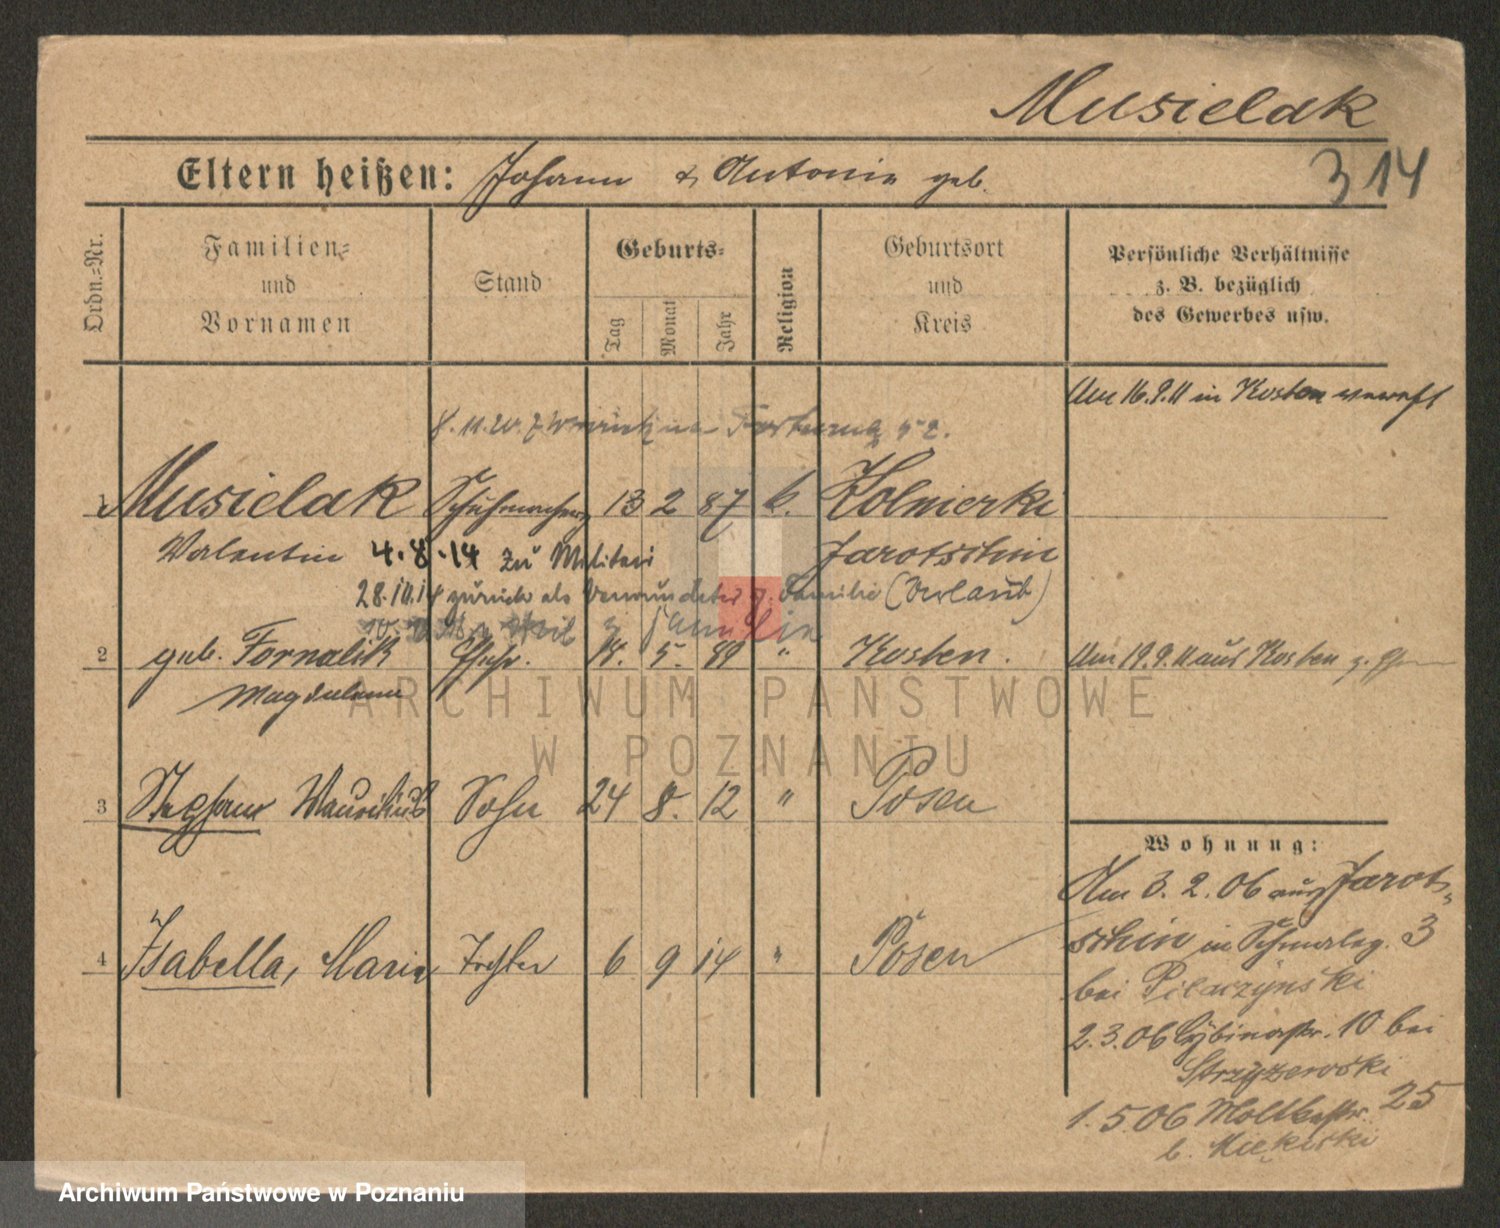 Musielak
314
Eltern heißen: Johann & Antonie geb.
Ordn.=Nr.
Familien=
und
Vornamen
Stand
Geburts=
Tag
Monat
Jahr
Religion
Geburtsort
und
Kreis
Persönliche Verhältnisse
z. B. bezüglich
des Gewerbes usw.
Am 16.9.11 in Kosten
1 Musielak Schuhmacher 13 2 87 k. Zolnierki
Valentin 4.8.14 zu Militär Jarotschin
28.10.14 zurück als Verwundeter z. Familie (Urlaub)
2 geb. Fornalik Ehefr. 18. 5. 89 " Kosten. Am 19.9.11 aus Kosten z.
Magdalena
3 Stephan Sohn 24 8. 12 " Posen
4 Isabella, Maria Tochter 6 9 14 " Posen
Wohnung:
Am 3.2.06 aus Jarot=
schin in 3
bei Pilarzynski
2.3.06 Cybinastr. 10 bei
Strzyzewski
1.5.06 Moltkestr. 25
b.
ARCHIWUM PAŃSTWOWE
W POZNANIU
Archiwum Państwowe w Poznaniu